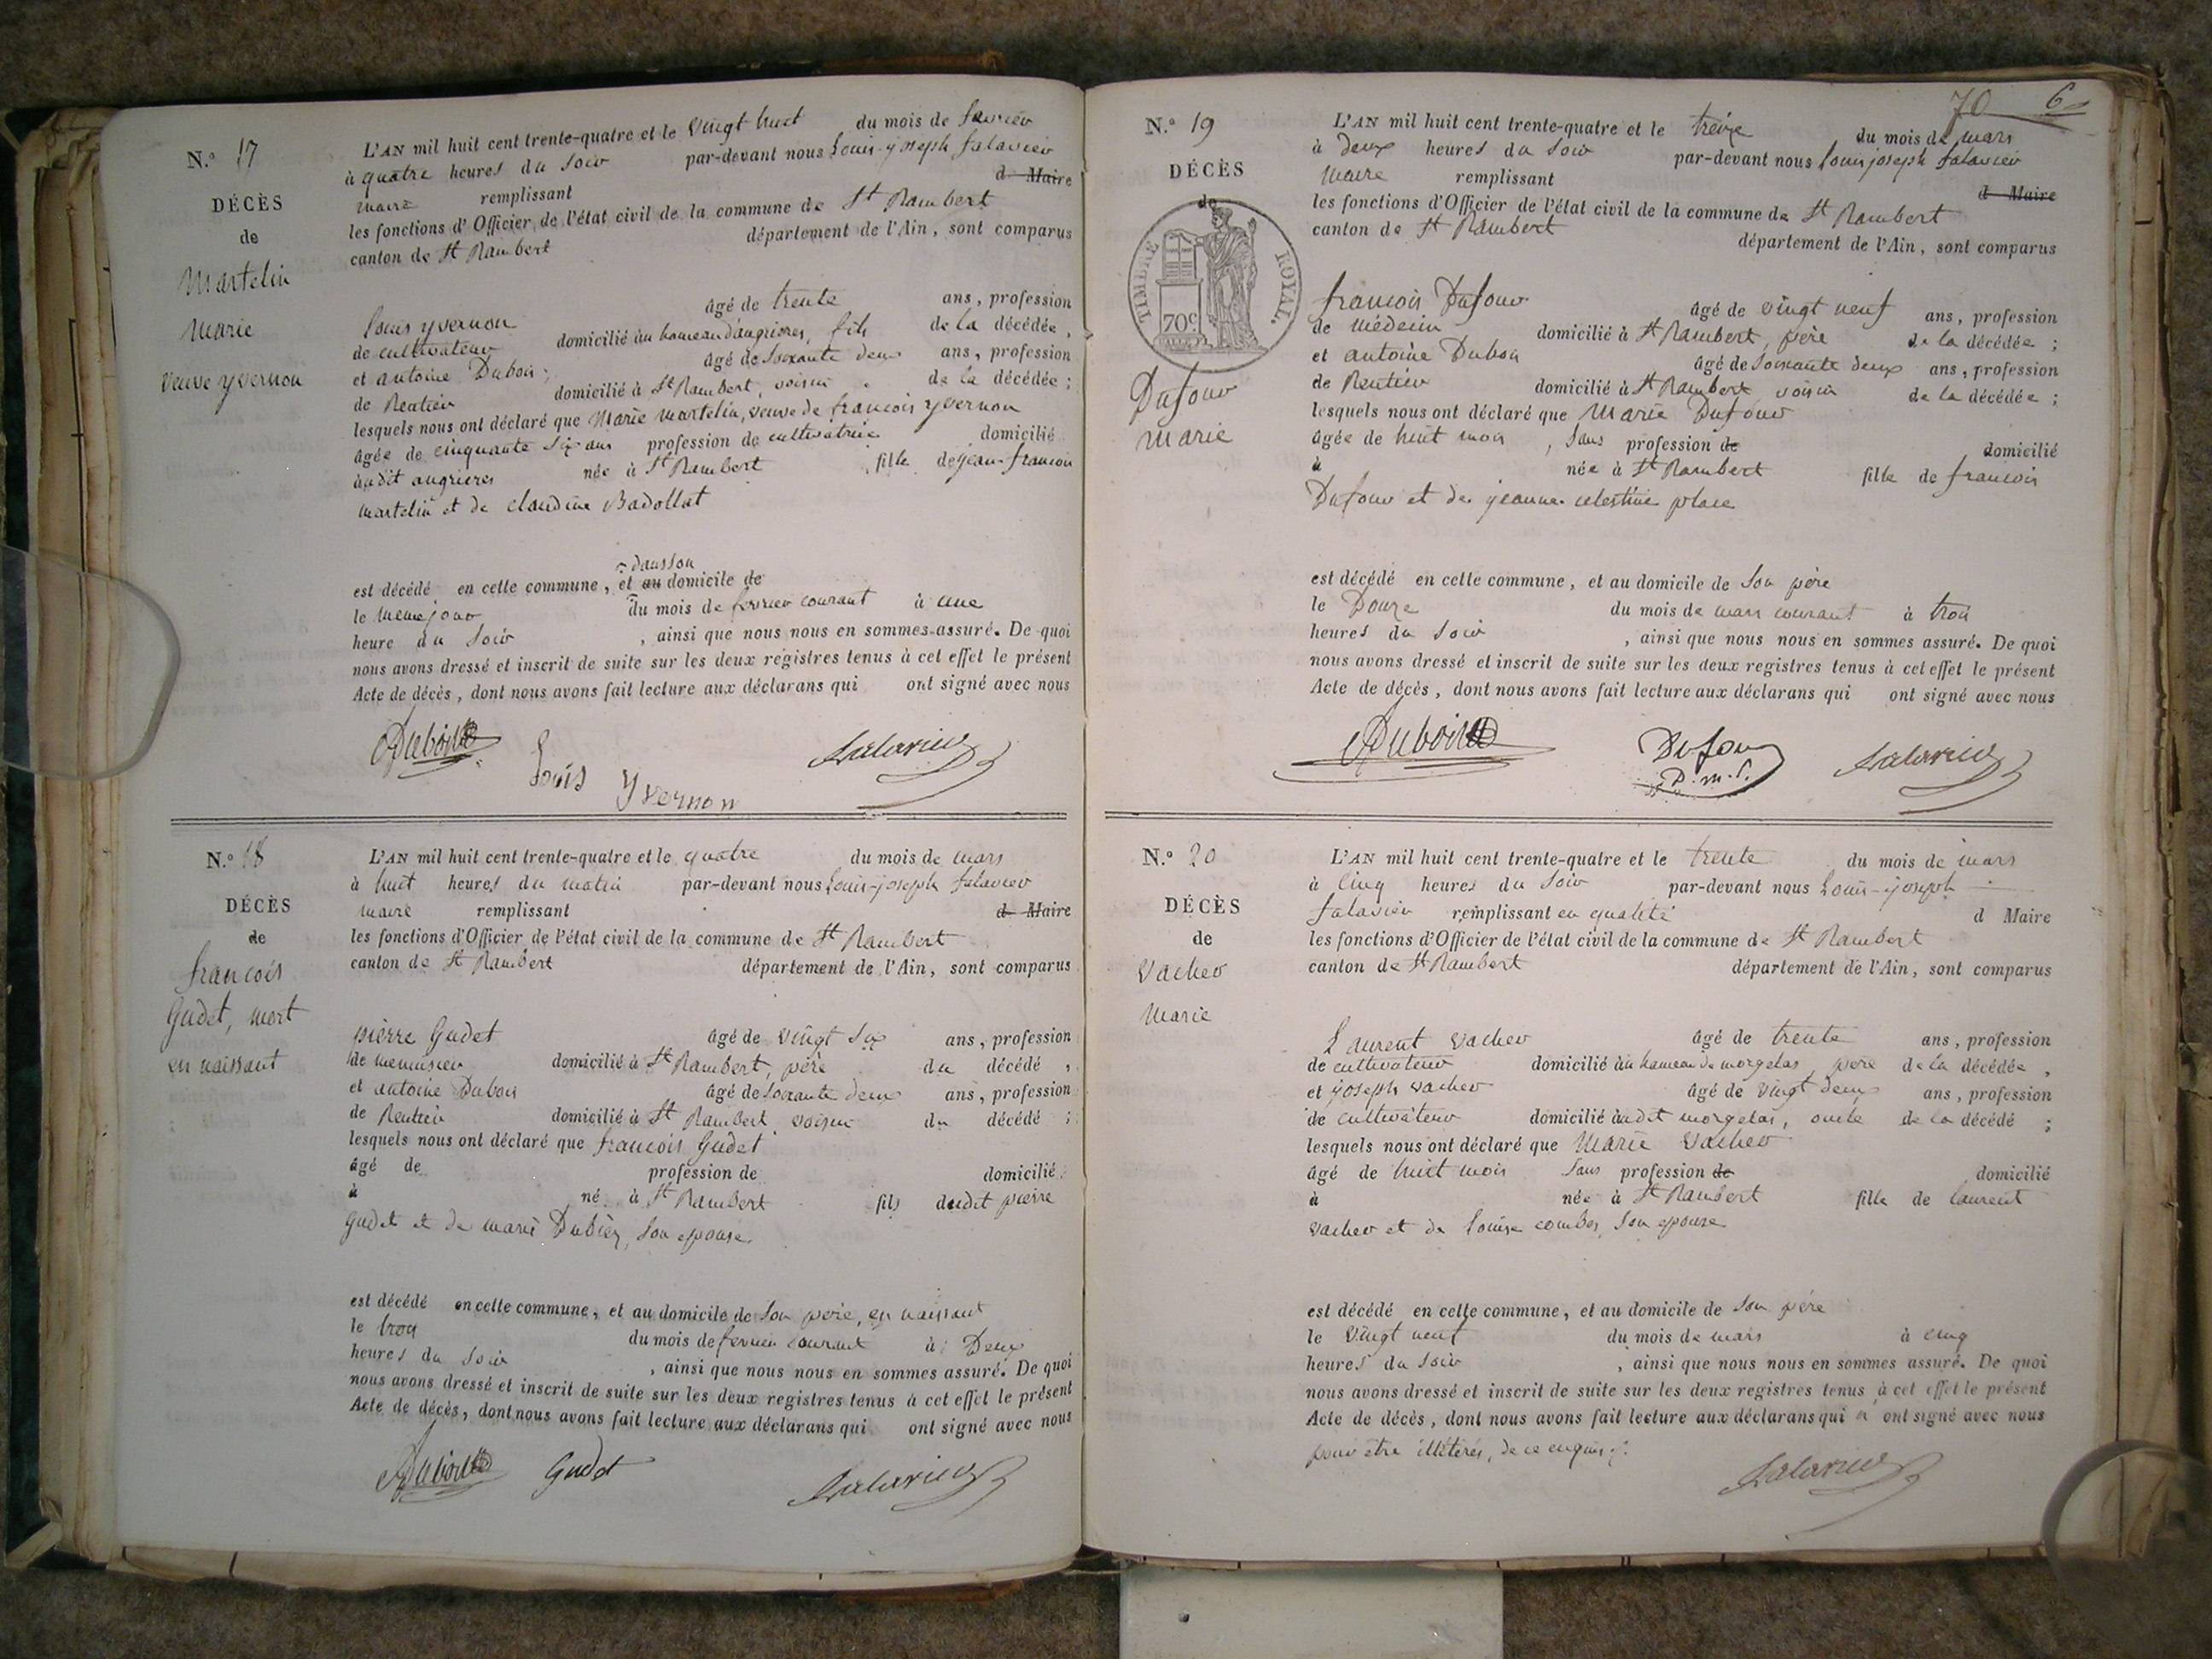 N.º 17
DÉCÈS
de
Martelin
Marie
veuve yvernon
L'AN mil huit cent trente-quatre et le vingt huit du mois de fevrier
à quatre heures du soir par-devant nous Louis-joseph falavier
maire remplissant d Maire
les fonctions d'Officier de l'état civil de la commune de St Rambert
canton de St Rambert département de l'Ain, sont comparus
louis yvernon âgé de trente ans, profession
de cultivateur domicilié au hameau d'angrieres, fils de la décédée,
et antoine Dubois; âgé de soixante deux ans, profession
de Rentier domicilié à St Rambert, voisin de la décédée;
lesquels nous ont déclaré que Marie martelin, veuve de francois yvernon
âgée de cinquante six ans profession de cultivatrice domicilié
audit angrieres née à St Rambert fille de jean-francois
martelin et de claudine Badollat
dans son
est décédé en cette commune, et au domicile de
le meme jour du mois de fevrier courant à une
heure du soir , ainsi que nous nous en sommes assuré. De quoi
nous avons dressé et inscrit de suite sur les deux registres tenus à cet effet le présent
Acte de décès, dont nous avons fait lecture aux déclarans qui ont signé avec nous
Dubois Louis Yvernon falavier
N.º 18
DÉCÈS
de
francois
Gudet, mort
en naissant
L'AN mil huit cent trente-quatre et le quatre du mois de mars
à huit heures du matin par-devant nous Louis-joseph falavier
maire remplissant d Maire
les fonctions d'Officier de l'état civil de la commune de St Rambert
canton de St Rambert département de l'Ain, sont comparus
pierre Gudet âgé de vingt six ans, profession
de menuisier domicilié à St Rambert, père du décédé,
et antoine Dubois âgé de soixante deux ans, profession
de Rentier domicilié à St Rambert voisin du décédé;
lesquels nous ont déclaré que francois Gudet
âgé de profession de domicilié
à né à St Rambert fils dudit pierre
Gudet et de marie son epouse
est décédé en cette commune, et au domicile de son père, en naissant
le trois du mois de fevrier courant à Deux
heures du soir , ainsi que nous nous en sommes assuré. De quoi
nous avons dressé et inscrit de suite sur les deux registres tenus à cet effet le présent
Acte de décès, dont nous avons fait lecture aux déclarans qui ont signé avec nous
Dubois Gudet falavier
70 6
N.º 19
DÉCÈS
de
TIMBRE ROYAL.
70c
Dufour
marie
L'AN mil huit cent trente-quatre et le treize du mois de mars
à deux heures du soir par-devant nous louis joseph falavier
maire remplissant d Maire
les fonctions d'Officier de l'état civil de la commune de St Rambert
canton de St Rambert département de l'Ain, sont comparus
francois Dufour âgé de vingt neuf ans, profession
de médecin domicilié à St Rambert, père de la décédée;
et antoine Dubois âgé de soixante deux ans, profession
de Rentier domicilié à St Rambert voisin de la décédée;
lesquels nous ont déclaré que Marie Dufour
âgée de huit mois, sans profession de domicilié
à née à St Rambert fille de francois
Dufour et de jeanne celestine place
est décédé en cette commune, et au domicile de son père
le Douze du mois de mars courant à trois
heures du soir , ainsi que nous nous en sommes assuré. De quoi
nous avons dressé et inscrit de suite sur les deux registres tenus à cet effet le présent
Acte de décès, dont nous avons fait lecture aux déclarans qui ont signé avec nous
Dubois Dufour falavier
D.m.
N.º 20
DÉCÈS
de
vacher
Marie
L'AN mil huit cent trente-quatre et le trente du mois de mars
à cinq heures du soir par-devant nous Louis-joseph
falavier remplissant en qualité d Maire
les fonctions d'Officier de l'état civil de la commune de St Rambert
canton de St Rambert département de l'Ain, sont comparus
Laurent vacher âgé de trente ans, profession
de cultivateur domicilié au hameau de morgelas, père de la décédée,
et joseph vacher âgé de vingt deux ans, profession
de cultivateur domicilié audit morgelas, oncle de la décédé;
lesquels nous ont déclaré que Marie vacher
âgé de huit mois sans profession de domicilié
à née à St Rambert fille de laurent
vacher et de louise combes, son epouse
est décédé en cette commune, et au domicile de son père
le vingt neuf du mois de mars à cinq
heures du soir , ainsi que nous nous en sommes assuré. De quoi
nous avons dressé et inscrit de suite sur les deux registres tenus à cet effet le présent
Acte de décès, dont nous avons fait lecture aux déclarans qui n'ont signé avec nous
pour être illétérés, de ce enquis.
falavier